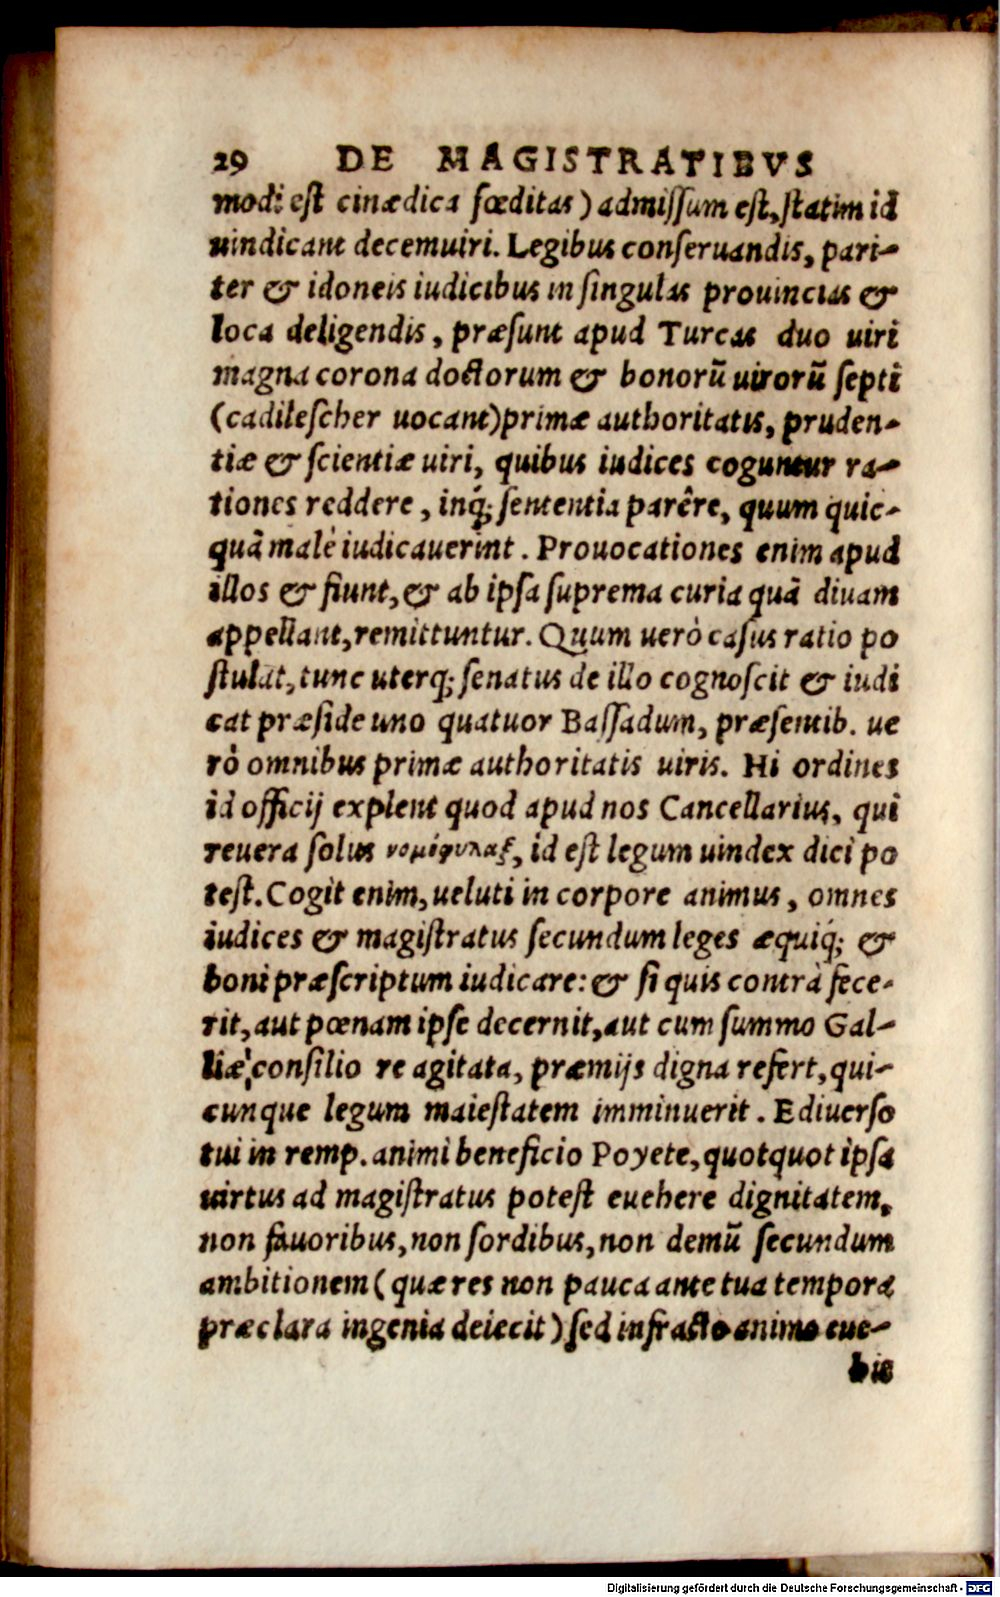 29 DE MAGISTRATIBVS
modi est cinædica fœditas) admissum est, statim id
uindicant decemuiri. Legibus conseruandis, pari-
ter & idoneis iudicibus in singulas prouincias &
loca deligendis, præsunt apud Turcas duo uiri
magna corona doctorum & bonorū uirorū septi
(cadilescher uocant) primæ authoritatis, pruden-
tiæ & scientiæ uiri, quibus iudices coguntur ra-
tiones reddere, inq́; sententia parêre, quum quic-
quā malè iudicauerint. Prouocationes enim apud
illos & fiunt, & ab ipsa suprema curia quā diuam
appellant, remittuntur. Quum uerò casus ratio po
stulat, tunc uterq; senatus de illo cognoscit & iudi
cat præside uno quatuor Bassadum, præsentib. ue
rò omnibus primæ authoritatis uiris. Hi ordines
id officij explent quod apud nos Cancellarius, qui
reuera solus νομόφυλαξ, id est legum uindex dici po
test. Cogit enim, ueluti in corpore animus, omnes
iudices & magistratus secundum leges æquiq́; &
boni præscriptum iudicare: & si quis contrà fece-
rit, aut pœnam ipse decernit, aut cum summo Gal-
liæ consilio re agitata, præmijs digna refert, qui-
cunque legum maiestatem imminuerit. E diuerso
tui in remp. animi beneficio Poyete, quotquot ipsa
uirtus ad magistratus potest euehere dignitatem,
non fauoribus, non sordibus, non demū secundum
ambitionem (quæ res non pauca ante tua tempora
præclara ingenia deiecit) sed infracto animo eue-
bis
Digitalisierung gefördert durch die Deutsche Forschungsgemeinschaft - DFG